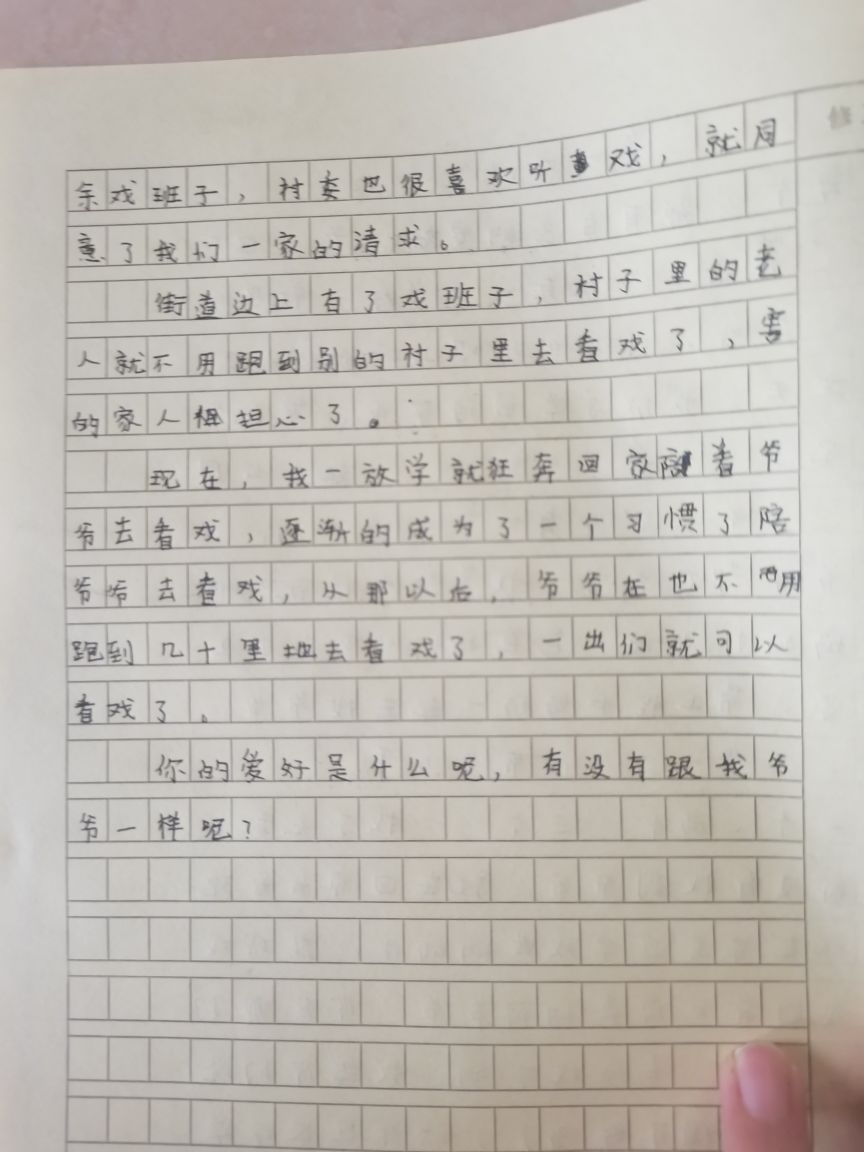 戏班子，村委也很喜欢听戏，就同
意了我们一家的请求。
街道边上有了戏班子，村子里的老
人就不用跑到别的村子里去看戏了，害
的家人担心了。
现在，我一放学就狂奔回家陪着爷
爷去看戏，逐渐的成为了一个习惯了陪
爷爷去看戏，从那以后，爷爷在也不用
跑到几十里地去看戏了，一出们就可以
看戏了。
你的爱好是什么呢，有没有跟我爷
爷一样呢？